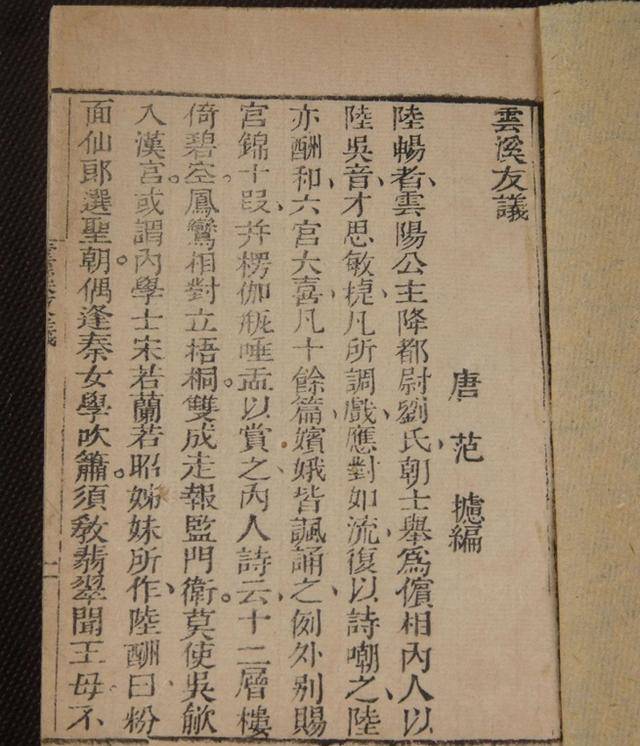 雲溪友議
唐 范 攄編
陸暢者雲陽公主降都尉劉氏朝士舉爲儐相內人以
陸吳音才思敏捷凡所調戲應對如流復以詩嘲之陸
亦酬和六宮大喜凡十餘篇嬪娥皆諷誦之例外別賜
宮錦十段并楞伽瓶唾盂以賞之內人詩云十二層樓
倚碧空。鳳鸞相對立梧桐。雙成走報監門衛。莫使吳歈
入漢宮。或謂內學士宋若蘭若昭姊妹所作陸酬曰粉
面仙郎選聖朝。偶逢秦女學吹簫。須敎翡翠聞王母。不